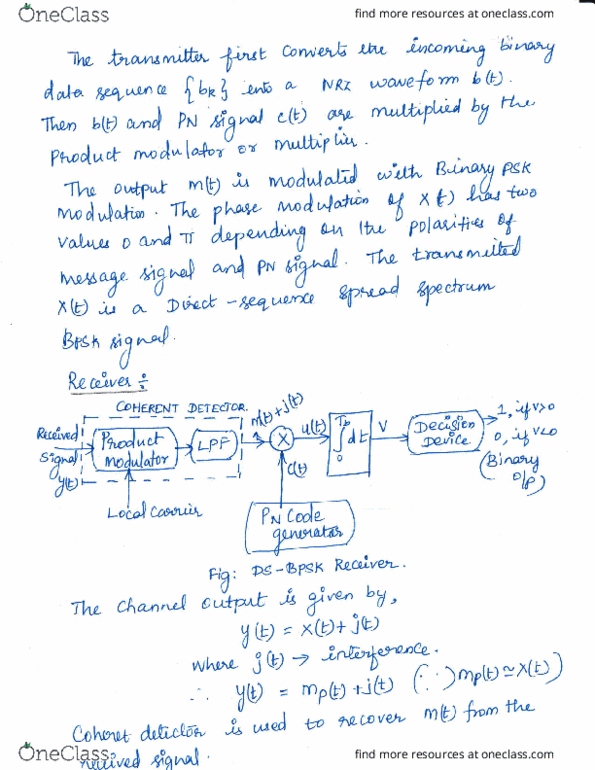 OneClass
find more resources at oneclass.com
The transmitter first converts the incoming binary
data sequence {bk} into a NRZ waveform b(t).
Then b(t) and PN signal c(t) are multiplied by the
product modulator or multiplier.
The output m(t) is modulated with Binary PSK
modulation. The phase modulation of x(t) has two
values 0 and π depending on the polarities of
message signal and PN signal. The transmitted
x(t) is a Direct-sequence spread spectrum
BPSK signal.
Receiver ÷
COHERENT DETECTOR.
Received
Signal
y(t)
Product
modulator
LPF
m(t)+j(t)
X
u(t)
Tb
∫dt
0
V
Decision
Device
1, if V>0
0, if V<0
(Binary
O/P)
c(t)
Local Carrier
PN Code
generator
Fig: DS-BPSK Receiver.
The channel output is given by,
y(t) = x(t)+j(t)
where j(t) → interference.
∴ y(t) = mp(t)+j(t) (∵) mp(t)≃x(t))
Coheret detector is used to recover m(t) from the
received signal.
OneClass
find more resources at oneclass.com